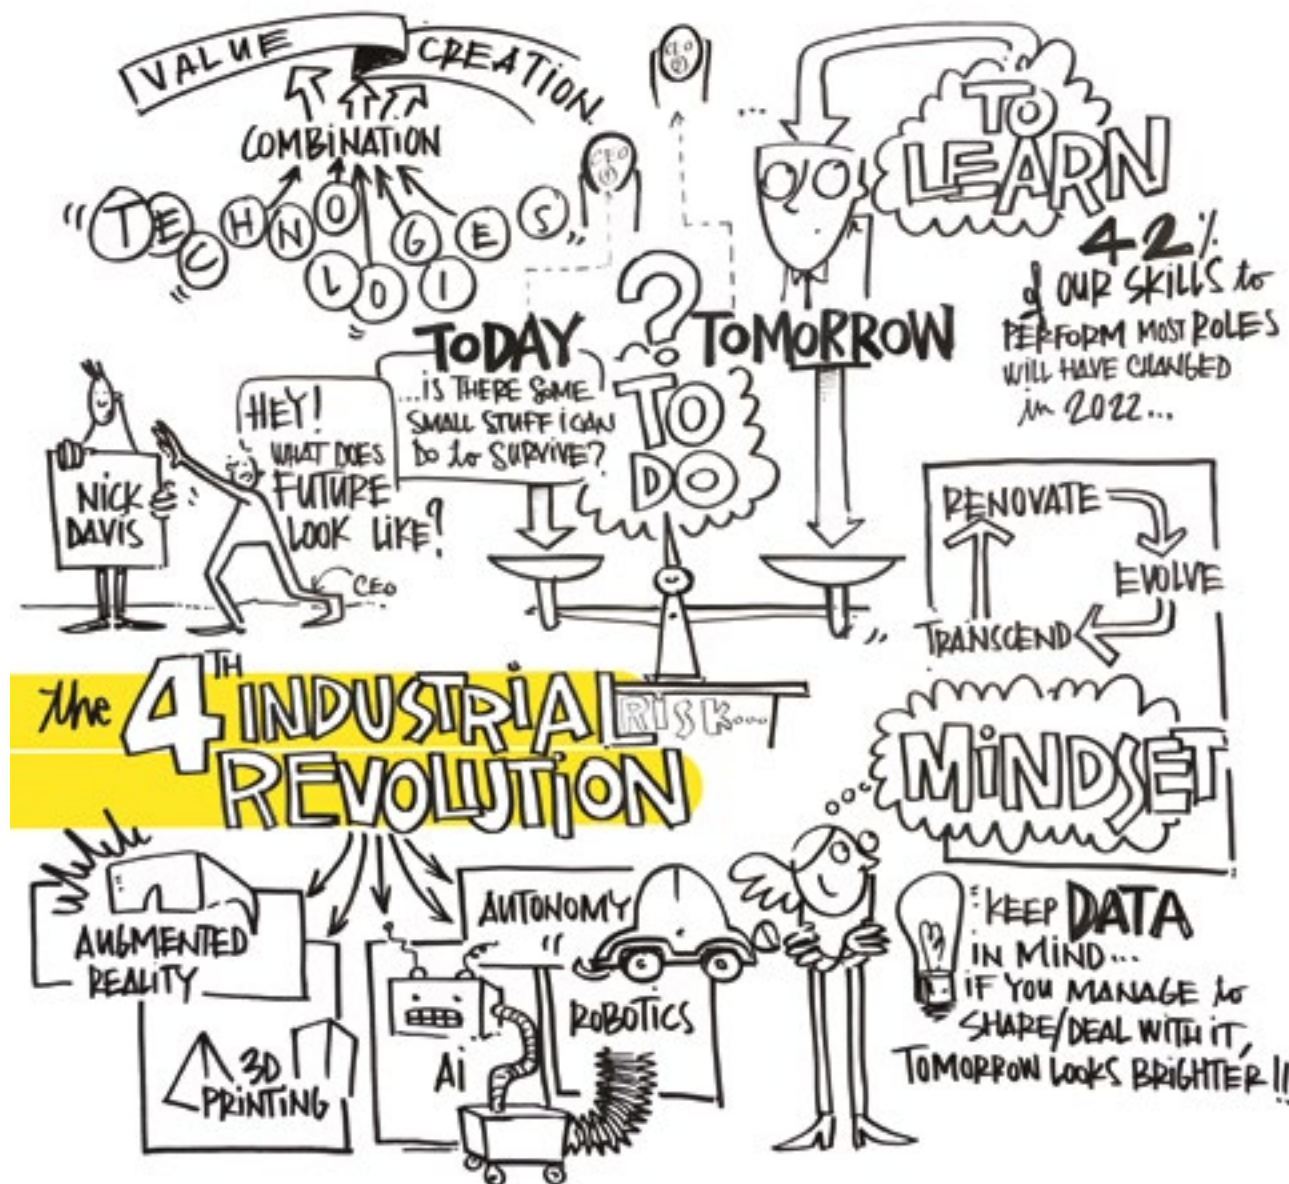 VALUE CREATION
COMBINATION
"TECHNOLOGIES"
CEO
①
CEO
②
...
TO
LEARN
42%
of OUR SKILLS to
PERFORM MOST ROLES
WILL HAVE CHANGED
in 2022...
TODAY
?
TOMORROW
...IS THERE SOME
SMALL STUFF I CAN
DO to SURVIVE?
TO
DO
HEY!
WHAT DOES
FUTURE
LOOK LIKE?
NICK
DAVIS
CEO
RENOVATE
EVOLVE
TRANSCEND
MINDSET
the 4TH INDUSTRIAL
REVOLUTION
RISK....
AUGMENTED
REALITY
3D
PRINTING
AI
AUTONOMY
ROBOTICS
KEEP DATA
IN MIND...
IF YOU MANAGE to
SHARE/DEAL WITH IT,
TOMORROW LOOKS BRIGHTER!!